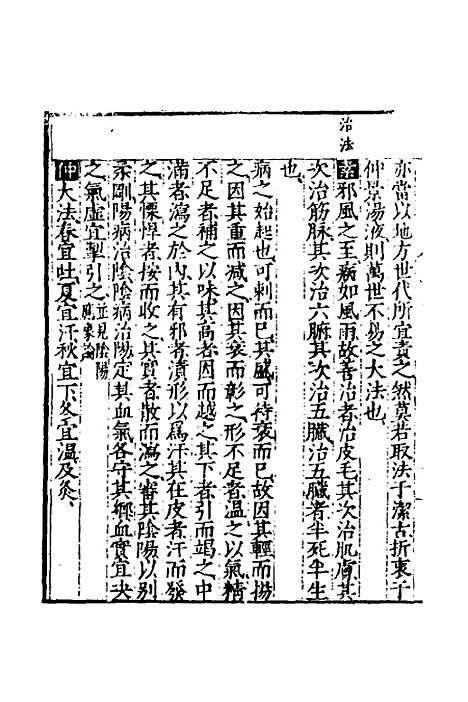 亦當以地方世代所宜責之然莫若取法于潔古折衷于
仲景湯液則萬世不易之大法也
治法
素邪風之至病如風雨故善治者治皮毛其次治肌膚其
次治筋脉其次治六腑其次治五臟治五臟者半死半生
也
病之始起也可刺而已其盛可待衰而已故因其輕而揚
之因其重而減之因其衰而彰之形不足者溫之以氣精
不足者補之以味其高者因而越之其下者引而竭之中
滿者瀉之於內其有邪者漬形以爲汗其在皮者汗而發
之其慓悍者按而收之其實者散而瀉之審其陰陽以別
柔剛陽病治陰陰病治陽定其血氣各守其鄉血實宜决
之氣虛宜掣引之並見陰陽應象論
仲大法春宜吐夏宜汗秋宜下冬宜溫及灸